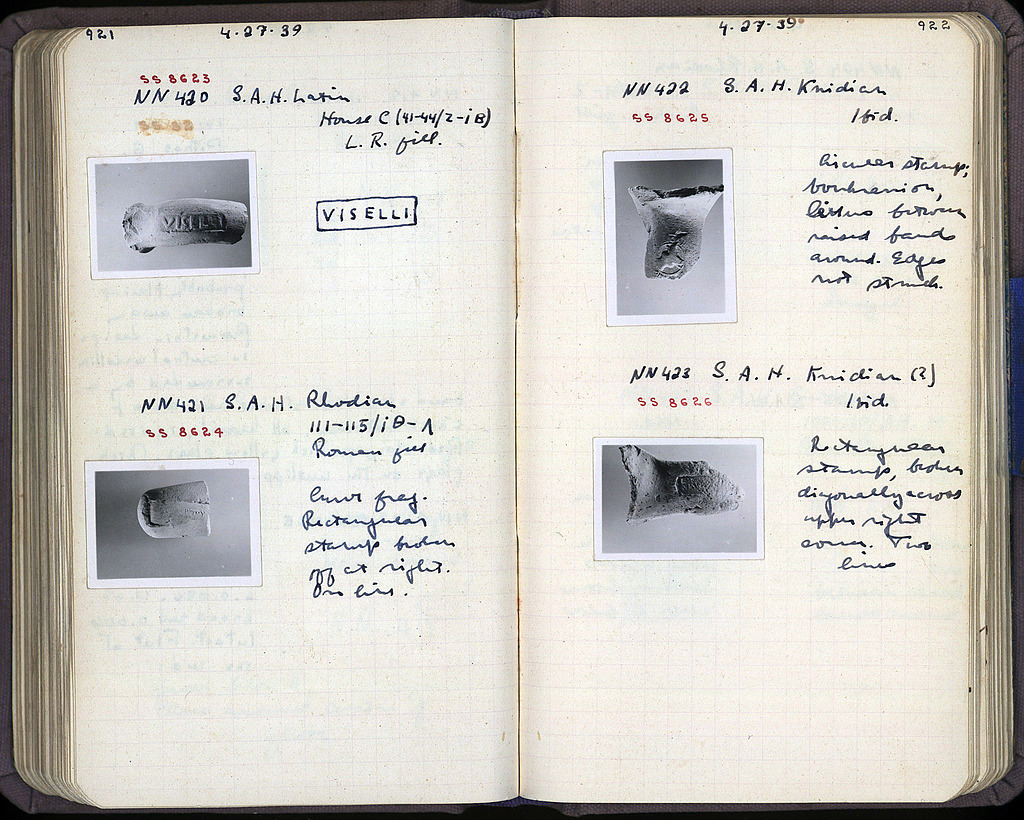 921
4-27-39
SS 8623
NN 420 S.A.H. Latin
House C (41-44/Z-iB)
L. R. fill.
VISELLI
VISELLI
NN 421 S.A.H. Rhodian
SS 8624
111-115/iΘ-Λ
Roman fill
Curve frag.
Rectangular
stamp broken
off at right.
One line.
4-27-39
922
NN 422 S.A.H. Knidian
SS 8625
Ibid.
Circular stamp;
boukranion,
letters between
raised bands
around. Edges
not struck.
NN 423 S.A.H. Knidian (?)
SS 8626
Ibid.
Rectangular
stamp, broken
diagonally across
upper right
corner. Two
lines